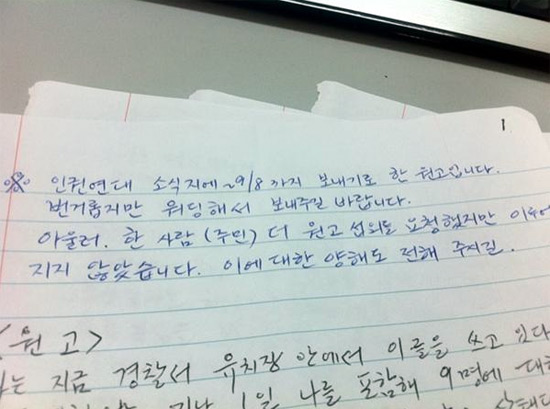 1
※ 인권연대 소식지에 ~9/8까지 보내기로 한 원고입니다.
번거롭지만 워딩해서 보내주길 바랍니다.
아울러, 한 사람 (주민) 더 원고 섭외도 요청했지만 이루어
지지 않았습니다. 이에 대한 양해도 전해 주시길.
<원고>
는 지금 경찰서 유치장 안에서 이 글을 쓰고 있다
지난 1일 나를 포함해 9명에 대한